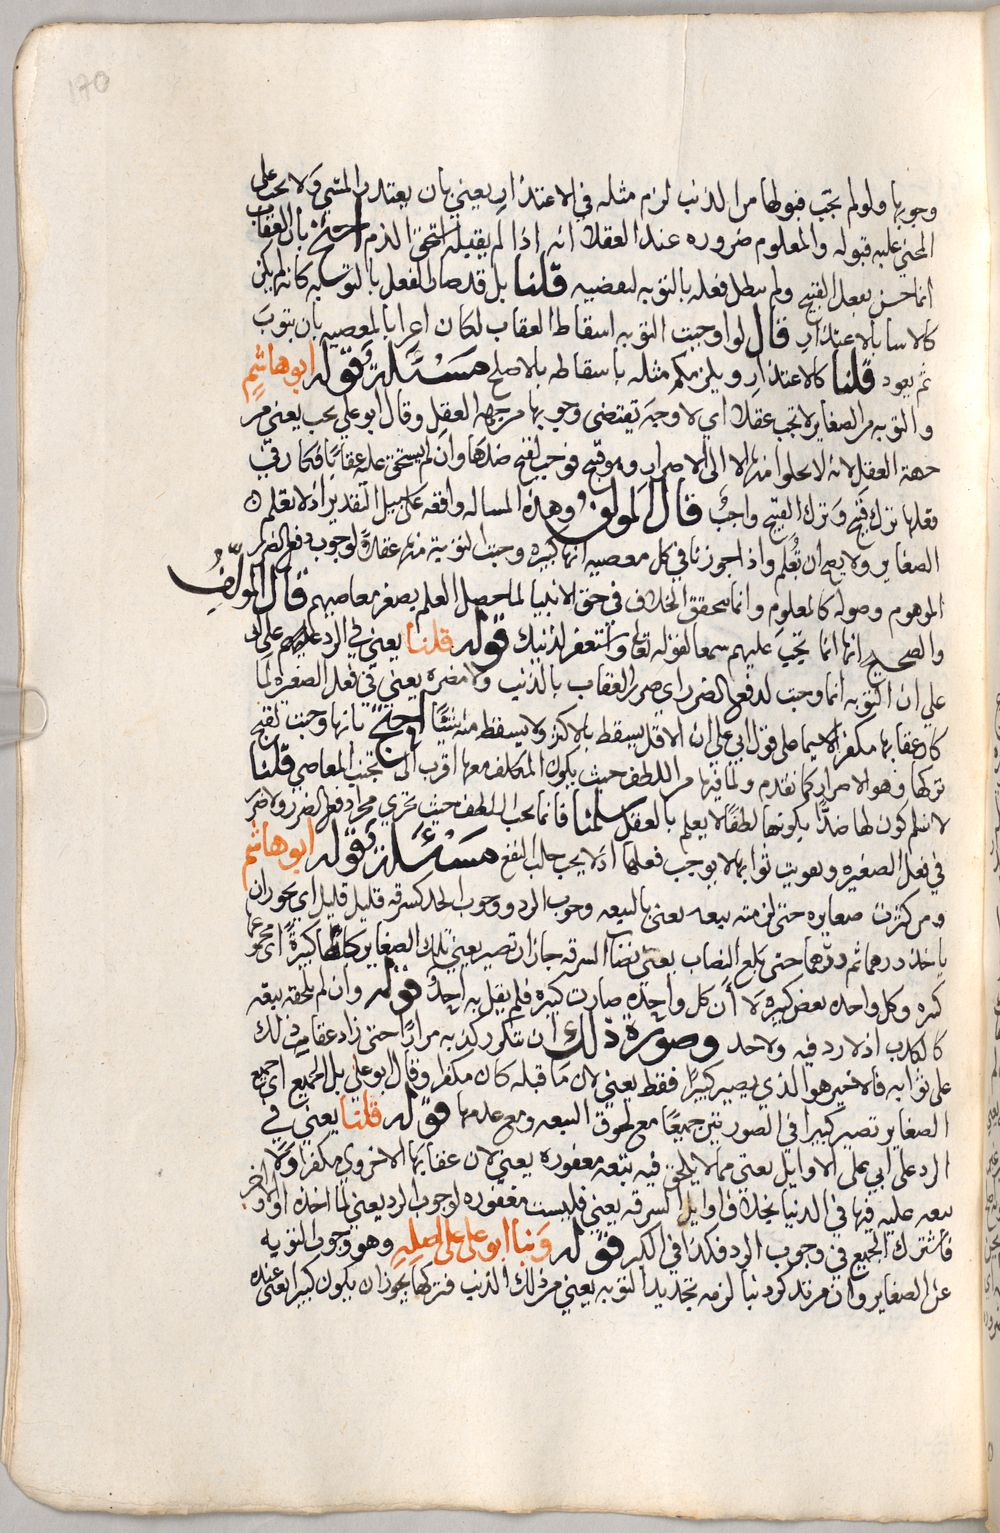 170
وجوبها ولو لم يجب قبولها من الذنب لزم مثله في الاعتذار يعني بان يعتذر المسي ولا يجب على
المجني عليه قبوله والمعلوم ضروره عند العقلا انه اذا لم يقبله استحق الذم احتج بان العقاب
انما حسن بفعل القبيح ولم يبطل فعله بالتوبه لتعضيه قلنا بل قد صار الفعل بالتوبه كانه لم يكن
كالاساء بالاعتذار قال لو اوجبت التوبه اسقاط العقاب لكان اغرا بالمعصيه بان يتوب
ثم يعود قلنا كالاعتذار ويلزمكم مثله باسقاطه بالاصلح مسئلة قوله ابو هاشم
والتوبه من الصغاير لا تجب عقلا اي لا وجه يقتضي وجوبها من جهه العقل وقال ابو علي يجب يعني من
جهة العقل لانه لا يخلوا منها الا الى الاصرار وهو قبيح فوجب لقبح ضدها وان لم يستحق عليه عقابا فكما رقي
فعلها ترك قبيح وترك القبيح واجب قال المولف وهذه المساله واقعه على سبيل التقدير اذ لا تعلم
الصغاير ولا يصح ان تُعلم واذا جوزنا في كل معصيه انها كبيره وجبت التوبة منها عقلاً لوجوب دفع الضرر
الموهوم وصوله كالمعلوم وانما يتحقق الخلاف في حق الانبيا لما حصل العلم بصغر معاصيهم قال المولّفُ
والصحيح انها انما تجب عليهم سمعا لقوله تعالى واستغفر لذنبك قوله قلنا يعني في الرد على ابي علي
علي ان التوبه انما وجبت لدفع الضرر اي ضرر العقاب بالذنب ولا مضره يعني في فعل الصغيره لما
كان عقابها مكفرا لا سيما على قول ابي علي ان الاقل يسقط بالاكثر ولا يسقط منه شيئا احتج بانها وجبت لقبح
تركها وهو الاصرار كما تقدم ولما فيها من اللطف حيث يكون المكلف معها اقرب الى تجنب المعاصي قلنا
لا نسلم كون لها ضدًّا يكونها لطفًا لا يعلم بالعقل سلمنا فانما يجب اللطف حيث يجري مجرا دفع الضرر ولا ضرر
في فعل الصغيره وتفويت ثوابها لا يوجب فعلها اذ لا يجب جلب النفع مسئلة قوله ابو هاشم
ومن كثرت صغايره حتى لزمته تبعه يعني بالتبعه وجوب الرد ووجوب الحد كسرقه قليل قليل اي يجوز ان
ياخذ درهما ثم درهما حتى بلغ النصاب يعني نصاب السرقه جاز ان تصير يعني تلك الصغاير كلها كبيرةً اي مجموعها
كبيره وكل واحده بعض كبيره لا أن كل واحده صارت كبيره فلم يقل به احد قوله وان لم يلحقه تبعه
كالكذب اذ لا رد فيه ولا حد وصورة ذلك ان تتكرر كذبه مرارًا حتى زاد عقاب ذلك
على ثوابه فالاخير هو الذي يصير كبيرًا فقط يعني لان ما قبله كان مكفرا وقال ابو علي بل الجميع اي جميع
الصغاير تصير كبيرا في الصورتين جميعًا مع لحوق التبعه ومع عدمها قوله قلنا يعني في
الرد على ابي علي الاوايل يعني مما لا يلحق فيه تبعه مغفوره يعني لان عقابها الاخروي مكفر ولا
تبعه عليه فيها في الدنيا بخلاف اوايل السرقه يعني فليست مغفوره لوجوب الرد يعني لما اخذه اولا والاخر
فاشترك الجميع في وجوب الرد فكذا في الكبر قوله وبنا ابو علي على اصله وهو وجوب التوبه
عن الصغاير وان من تذكر ذنبا لزمه تجديد التوبه يعني من ذلك الذنب فتركها يجوز ان يكون كبيرا يعني عنده